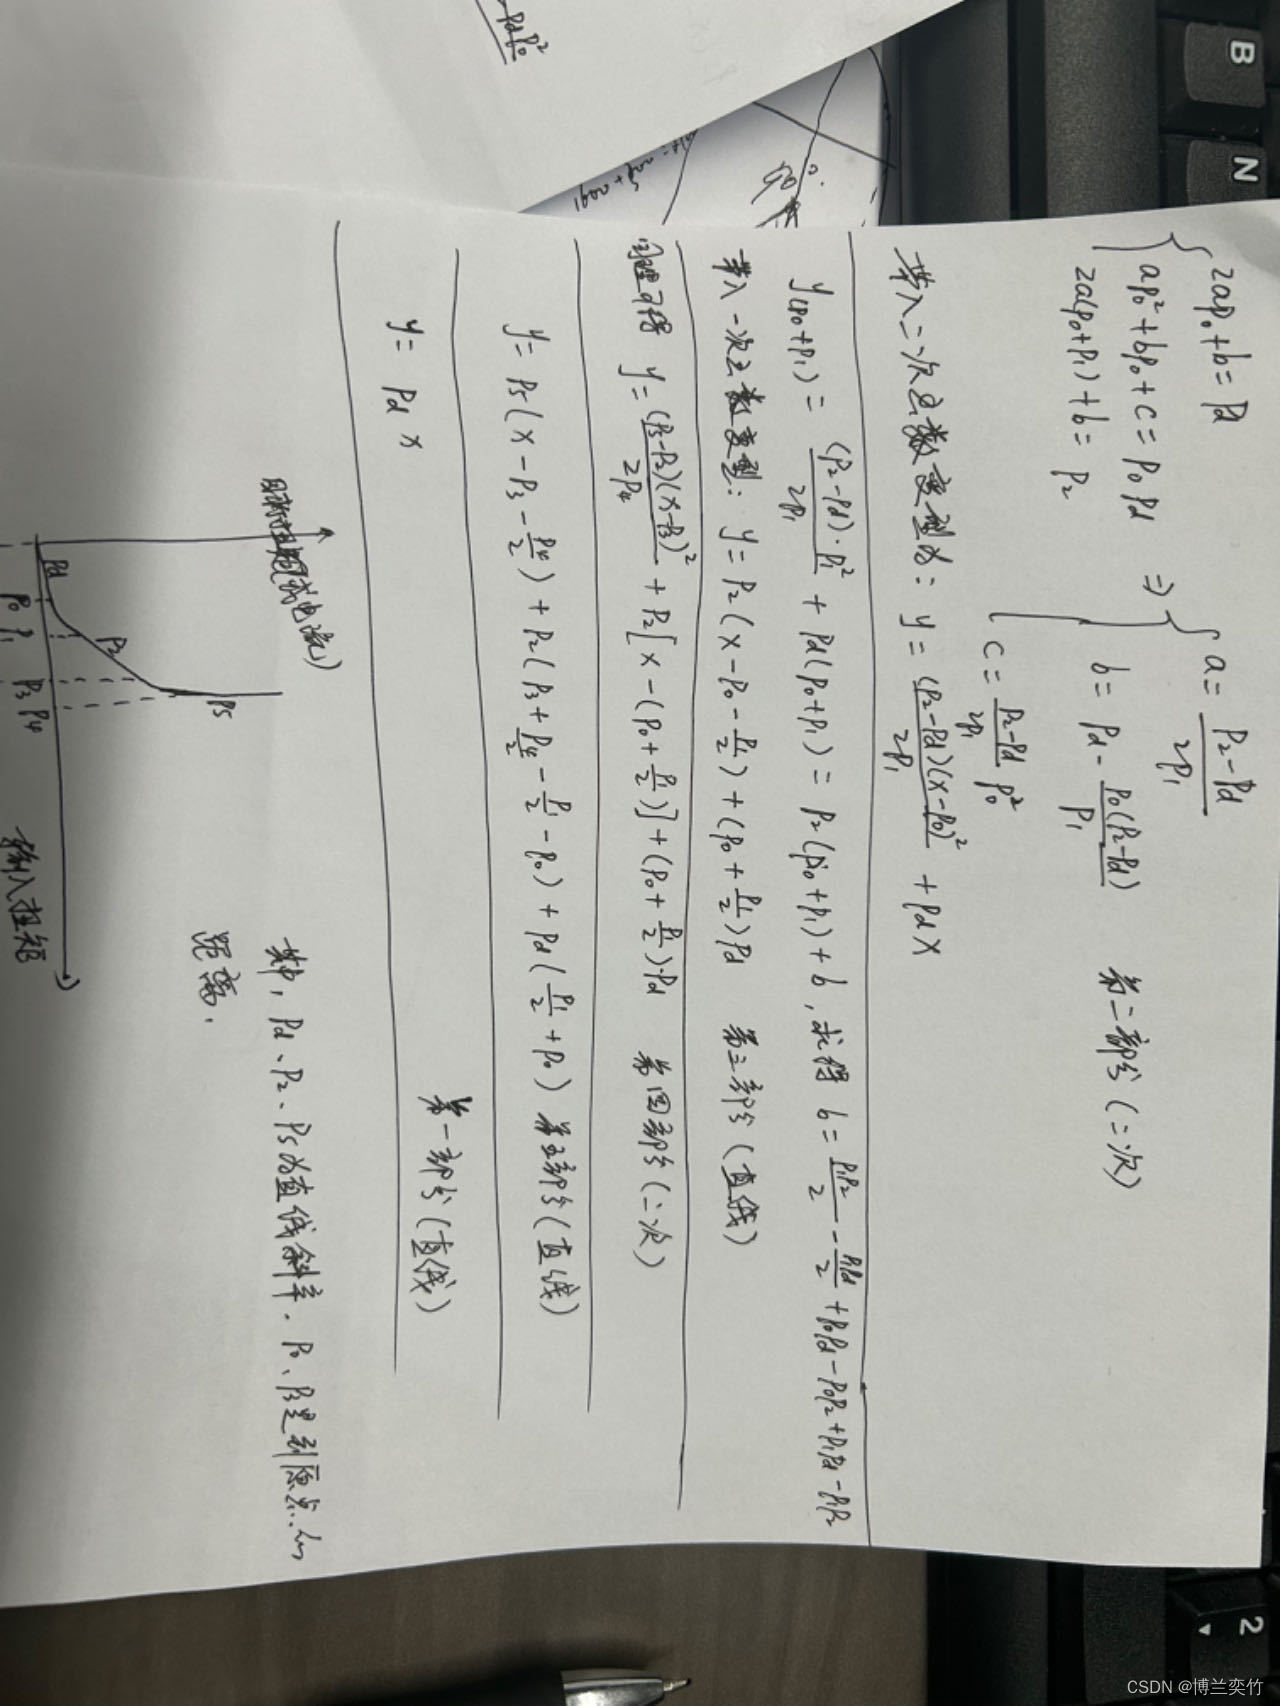 { 2ap₀+b=Pd
ap₀²+bp₀+c=p₀Pd
2a(p₀+p₁)+b=P₂
⇒ { a=(P₂-Pd)/2P₁
b=Pd-P₀(P₂-Pd)/P₁
c=(P₂-Pd)/2P₁ P₀²
第二部分(二次)
带入二次函数变型为: y=(P₂-Pd)(x-P₀)²/2P₁+Pdx
y(p₀+p₁)=(P₂-Pd)·P₁²/2P₁+Pd(p₀+p₁)=P₂(p₀+p₁)+b,求得 b=P₁P₂/2-P₁Pd/2+P₀Pd-P₀P₂+P₁Pd-P₁P₂
带入一次函数变型: y=P₂(x-P₀-P₁/2)+(P₀+P₁/2)Pd 第三部分(直线)
同理可得 y=(P₅-P₂)(x-P₃)²/2P₄+P₂[x-(P₀+P₁/2)]+(P₀+P₁/2)·Pd 第四部分(二次)
y=P₅(x-P₃-P₄/2)+P₂(P₃+P₄/2-P₁/2-P₀)+Pd(P₁/2+P₀) 第五部分(直线)
y=Pd x 第一部分(直线)
其中, Pd、P₂、P₅为直线斜率. P₀、P₃是到原点的
距离.
Pd
P₂
P₅
P₀ P₁
P₃ P₄
输入扭矩
B
N
2
CSDN @博兰奕竹